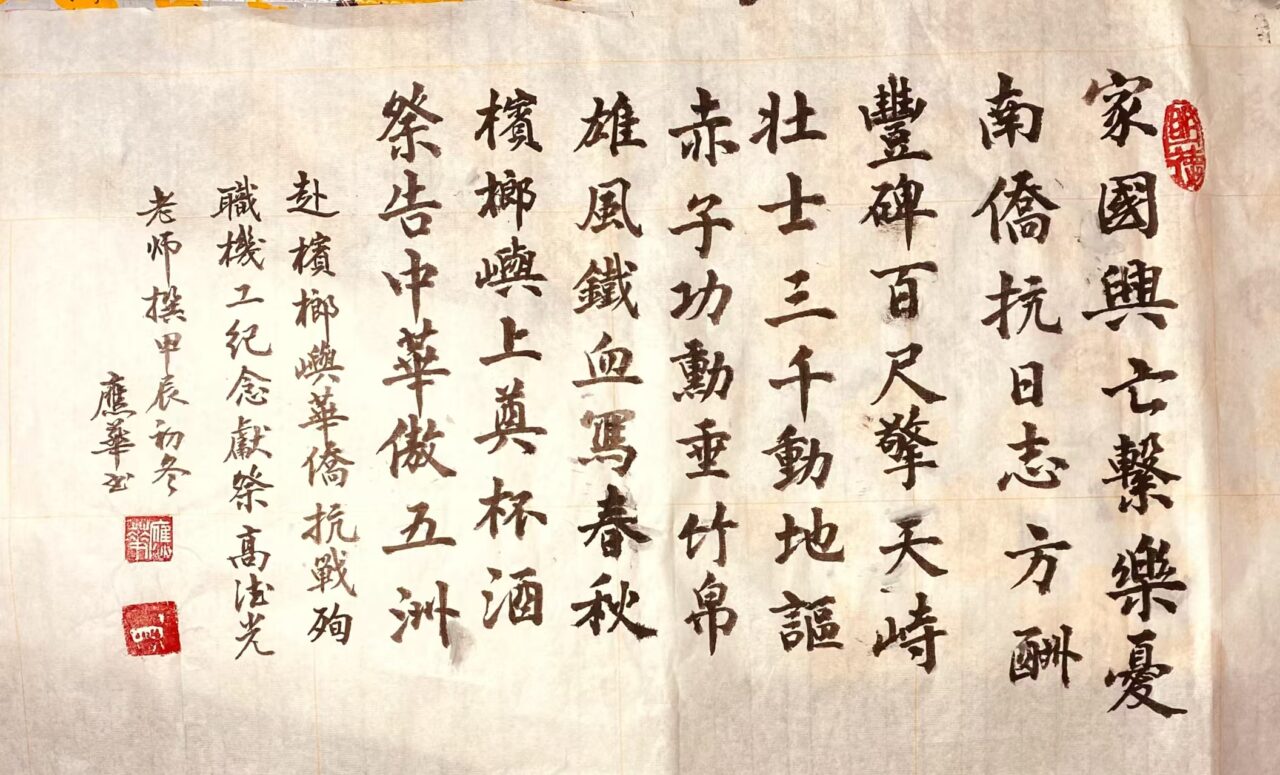 家國興亡繫樂憂
南僑抗日志方酬
豐碑百尺擎天峙
壯士三千動地謳
赤子功勳垂竹帛
雄風鐵血寫春秋
檳榔嶼上奠杯酒
祭告中華傲五洲
赴檳榔嶼華僑抗戰殉
職機工纪念獻祭高德光
老师撰甲辰初冬
應華书
應華